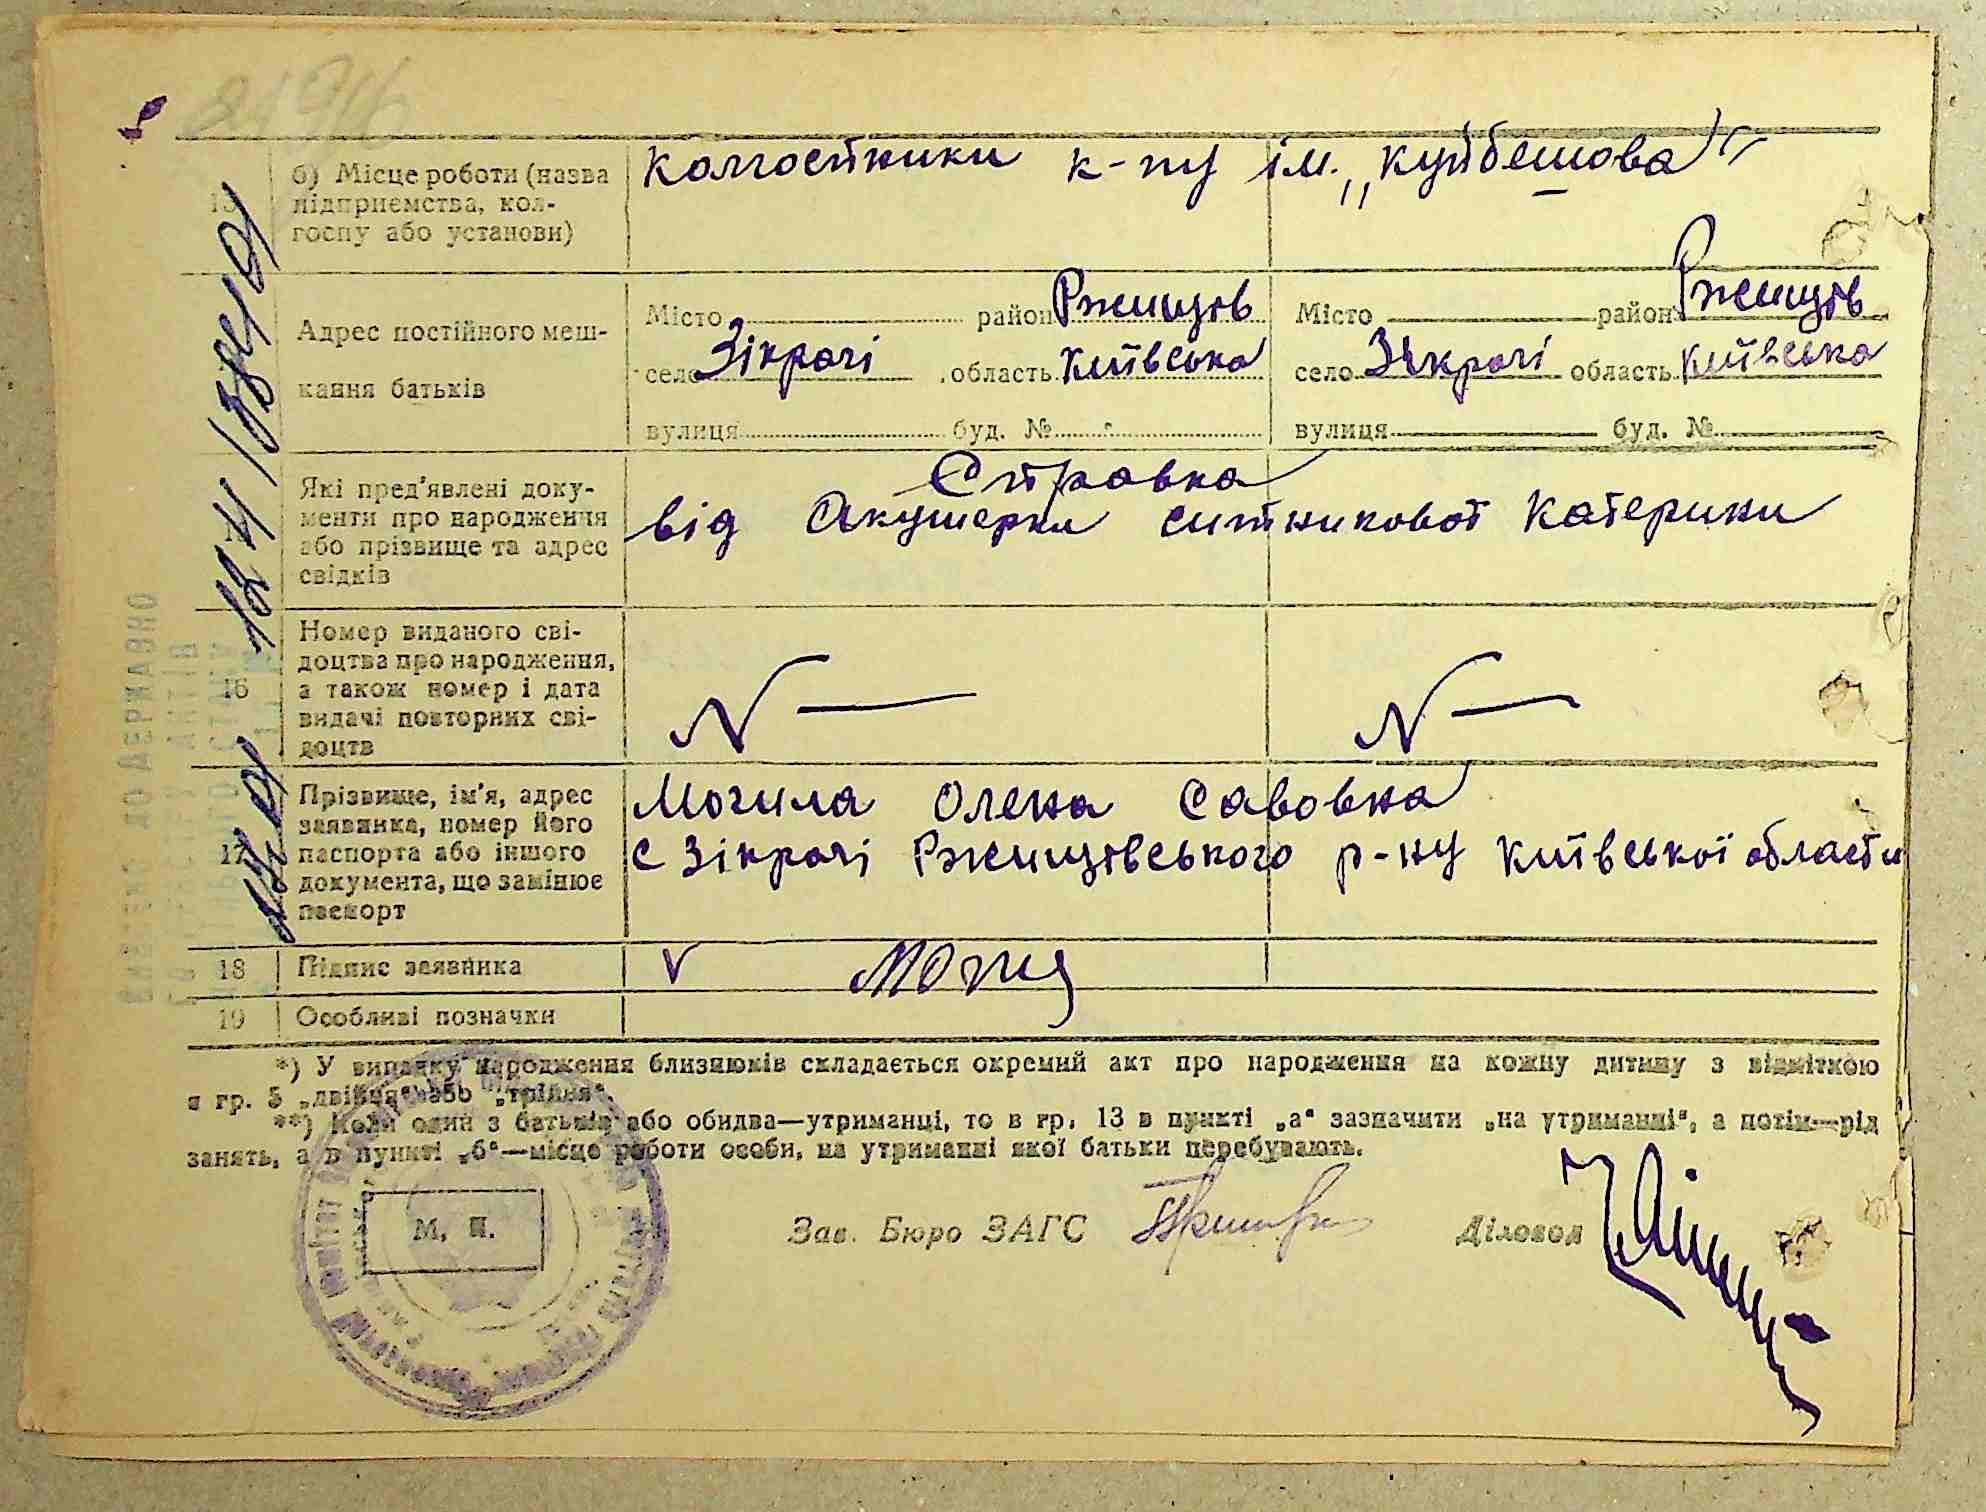 б) Місце роботи (назва
підприємства, кол-
госпу або установи)
Колгоспники к-пу ім. „Куйбешова"
Адрес постійного меш-
кання батьків
Місто район Ржищів
село Зікрачі область Київська
вулиця буд. №
Місто район Ржищів
село Зікрачі область Київська
вулиця буд. №
Які пред'явлені доку-
менти про народження
або прізвище та адрес
свідків
Справка
від Акушерки Ситникової Катерини
16
Номер виданого сві-
доцтва про народження,
а також номер і дата
видачі повторних сві-
доцтв
N —
N —
17
Прізвище, ім'я, адрес
заявника, номер його
паспорта або іншого
документа, що замінює
паспорт
Могила Олена Савовна
с Зікрачі Ржищівського р-ну Київської области
18 Підпис заявника
V
19 Особливі позначки
*) У випадку народження близнюків складається окремий акт про народження на кожну дитину з відміткою
в гр. 5 „двійня" або „трійня".
**) Коли один з батьків або обидва—утриманці, то в гр. 13 в пункті „а" зазначити „на утриманні", а потім—рід
занять, а в пункті „б"—місце роботи особи, на утриманні якої батьки перебувають.
М. П.
Зав. Бюро ЗАГС
Діловод